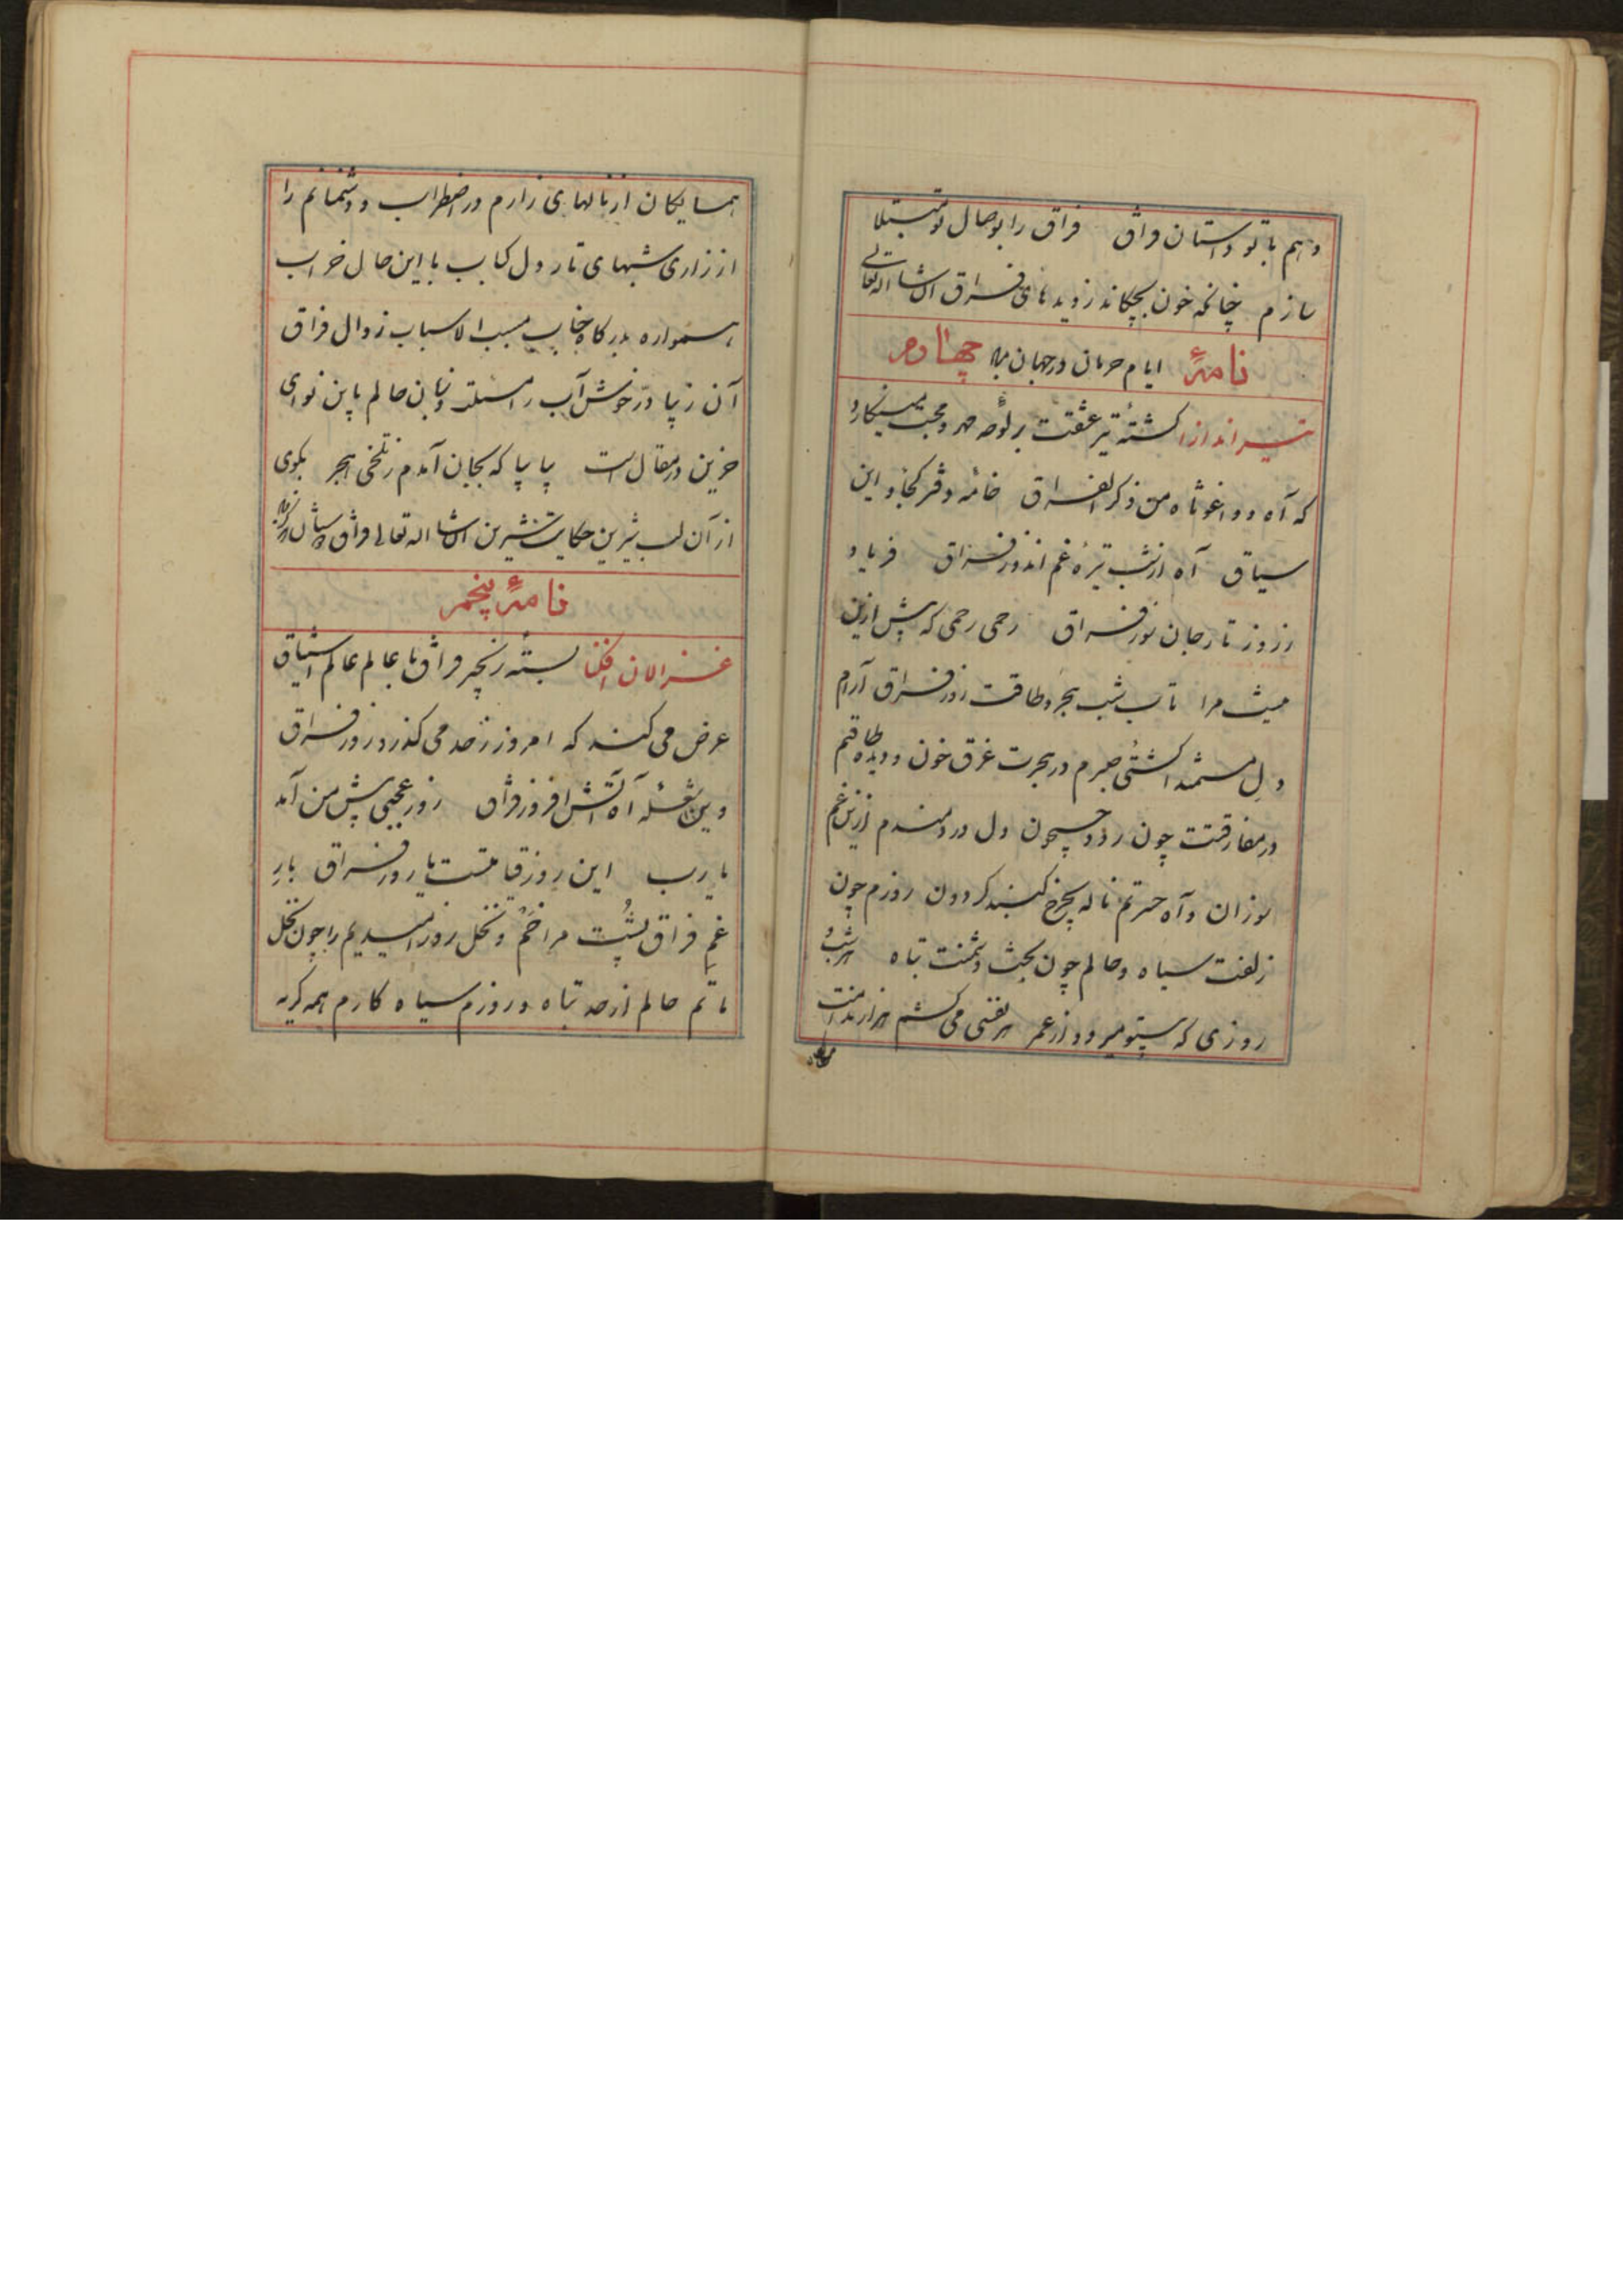 دهم با تو داستان فراق فراق را بوصال تو مبتلا
سازم چنانکه خون بچکاند ز دیدهای فراق ان شا اله تعالی
نامهٔ ایام حرمان در جهان چهارم
تیر اندازا کشتهٔ تیر عشقت بر لوحه مهر و محبت مینکارد
که آه و واغوثاه من ذکر الفراق خامه و دفتر کجا و این
سیاق آه از شب تیرهٔ غم اندوز فراق فریاد
ز روز تار جان سوز فراق رحمی رحمی که پیش ازین
نیست مرا تاب شب هجر و طاقت روز فراق آرام
دل مستمند کشتی صبرم در بحرت غرق خون و دیده طاقتم
در مفارقتت چون رود جیحون دل دردمندم ازین غم
سوزان و آه حسرتم ناله بچرخ کنبد کردون روزم چون
زلفت سیاه و حالم چون بخت دشمنت تباه هر شب و
روزی که بیتو میرود از عمر هر نفسی می کشم هزار ندامت
همسایکان از نالهای زارم در اضطراب و دشمنانم را
از زاری شبهای تار دل کباب با این حال خراب
همواره بدرکاه جناب مسبب الاسباب زوال فراق
آن زیبا در خوش آب را مسئلت و زبان حالم باین نوای
حزین در مقال است بیا بیا که بجان آمدم ز تلخی هجر بکوی
از آن لب شیرین حکایت شیرین ان شا اله تعالی
نامهٔ پنجم
غزالان افکنا بستهٔ زنجیر فراق با عالم عالم اشتیاق
عرض می کند که امروز ز حد می کذرد روز فراق
وین شعله آه آتش افروز فراق روز عجبی پیش من آمد
یا رب این روز قیامتست یا روز فراق بار
غم فراق پشت مرا خم و نخل روز امیدیم را چون نخل
ماتم حالم از حد تباه و روزم سیاه کارم همه کریه